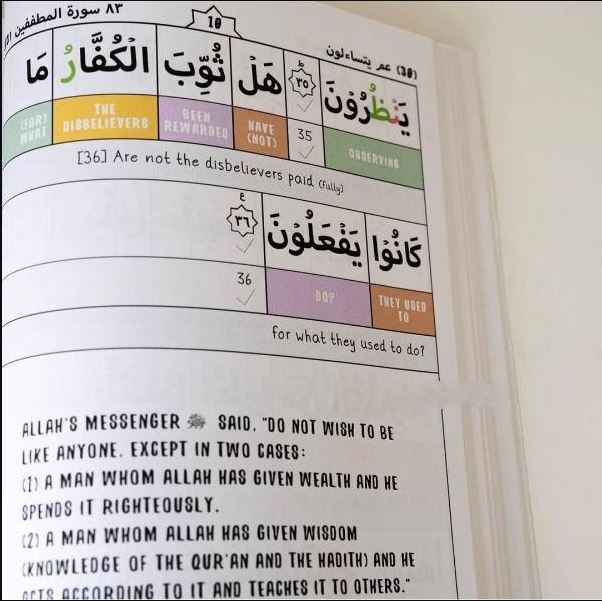 ٨٣ سورة المطففين
10
عم يتساءلون (30)
يَنْظُرُوْنَ ٣٥ هَلْ ثُوِّبَ الْكُفَّارُ مَا
OBSERVING 35 HAVE (NOT) BEEN REWARDED THE DISBELIEVERS (FOR) WHAT
[36] Are not the disbelievers paid (fully)
كَانُوْا يَفْعَلُوْنَ ٣٦ ع
THEY USED TO DO? 36
for what they used to do?
ALLAH'S MESSENGER ﷺ SAID, "DO NOT WISH TO BE
LIKE ANYONE, EXCEPT IN TWO CASES:
(1) A MAN WHOM ALLAH HAS GIVEN WEALTH AND HE
SPENDS IT RIGHTEOUSLY.
(2) A MAN WHOM ALLAH HAS GIVEN WISDOM
(KNOWLEDGE OF THE QUR'AN AND THE HADITH) AND HE
ACTS ACCORDING TO IT AND TEACHES IT TO OTHERS."